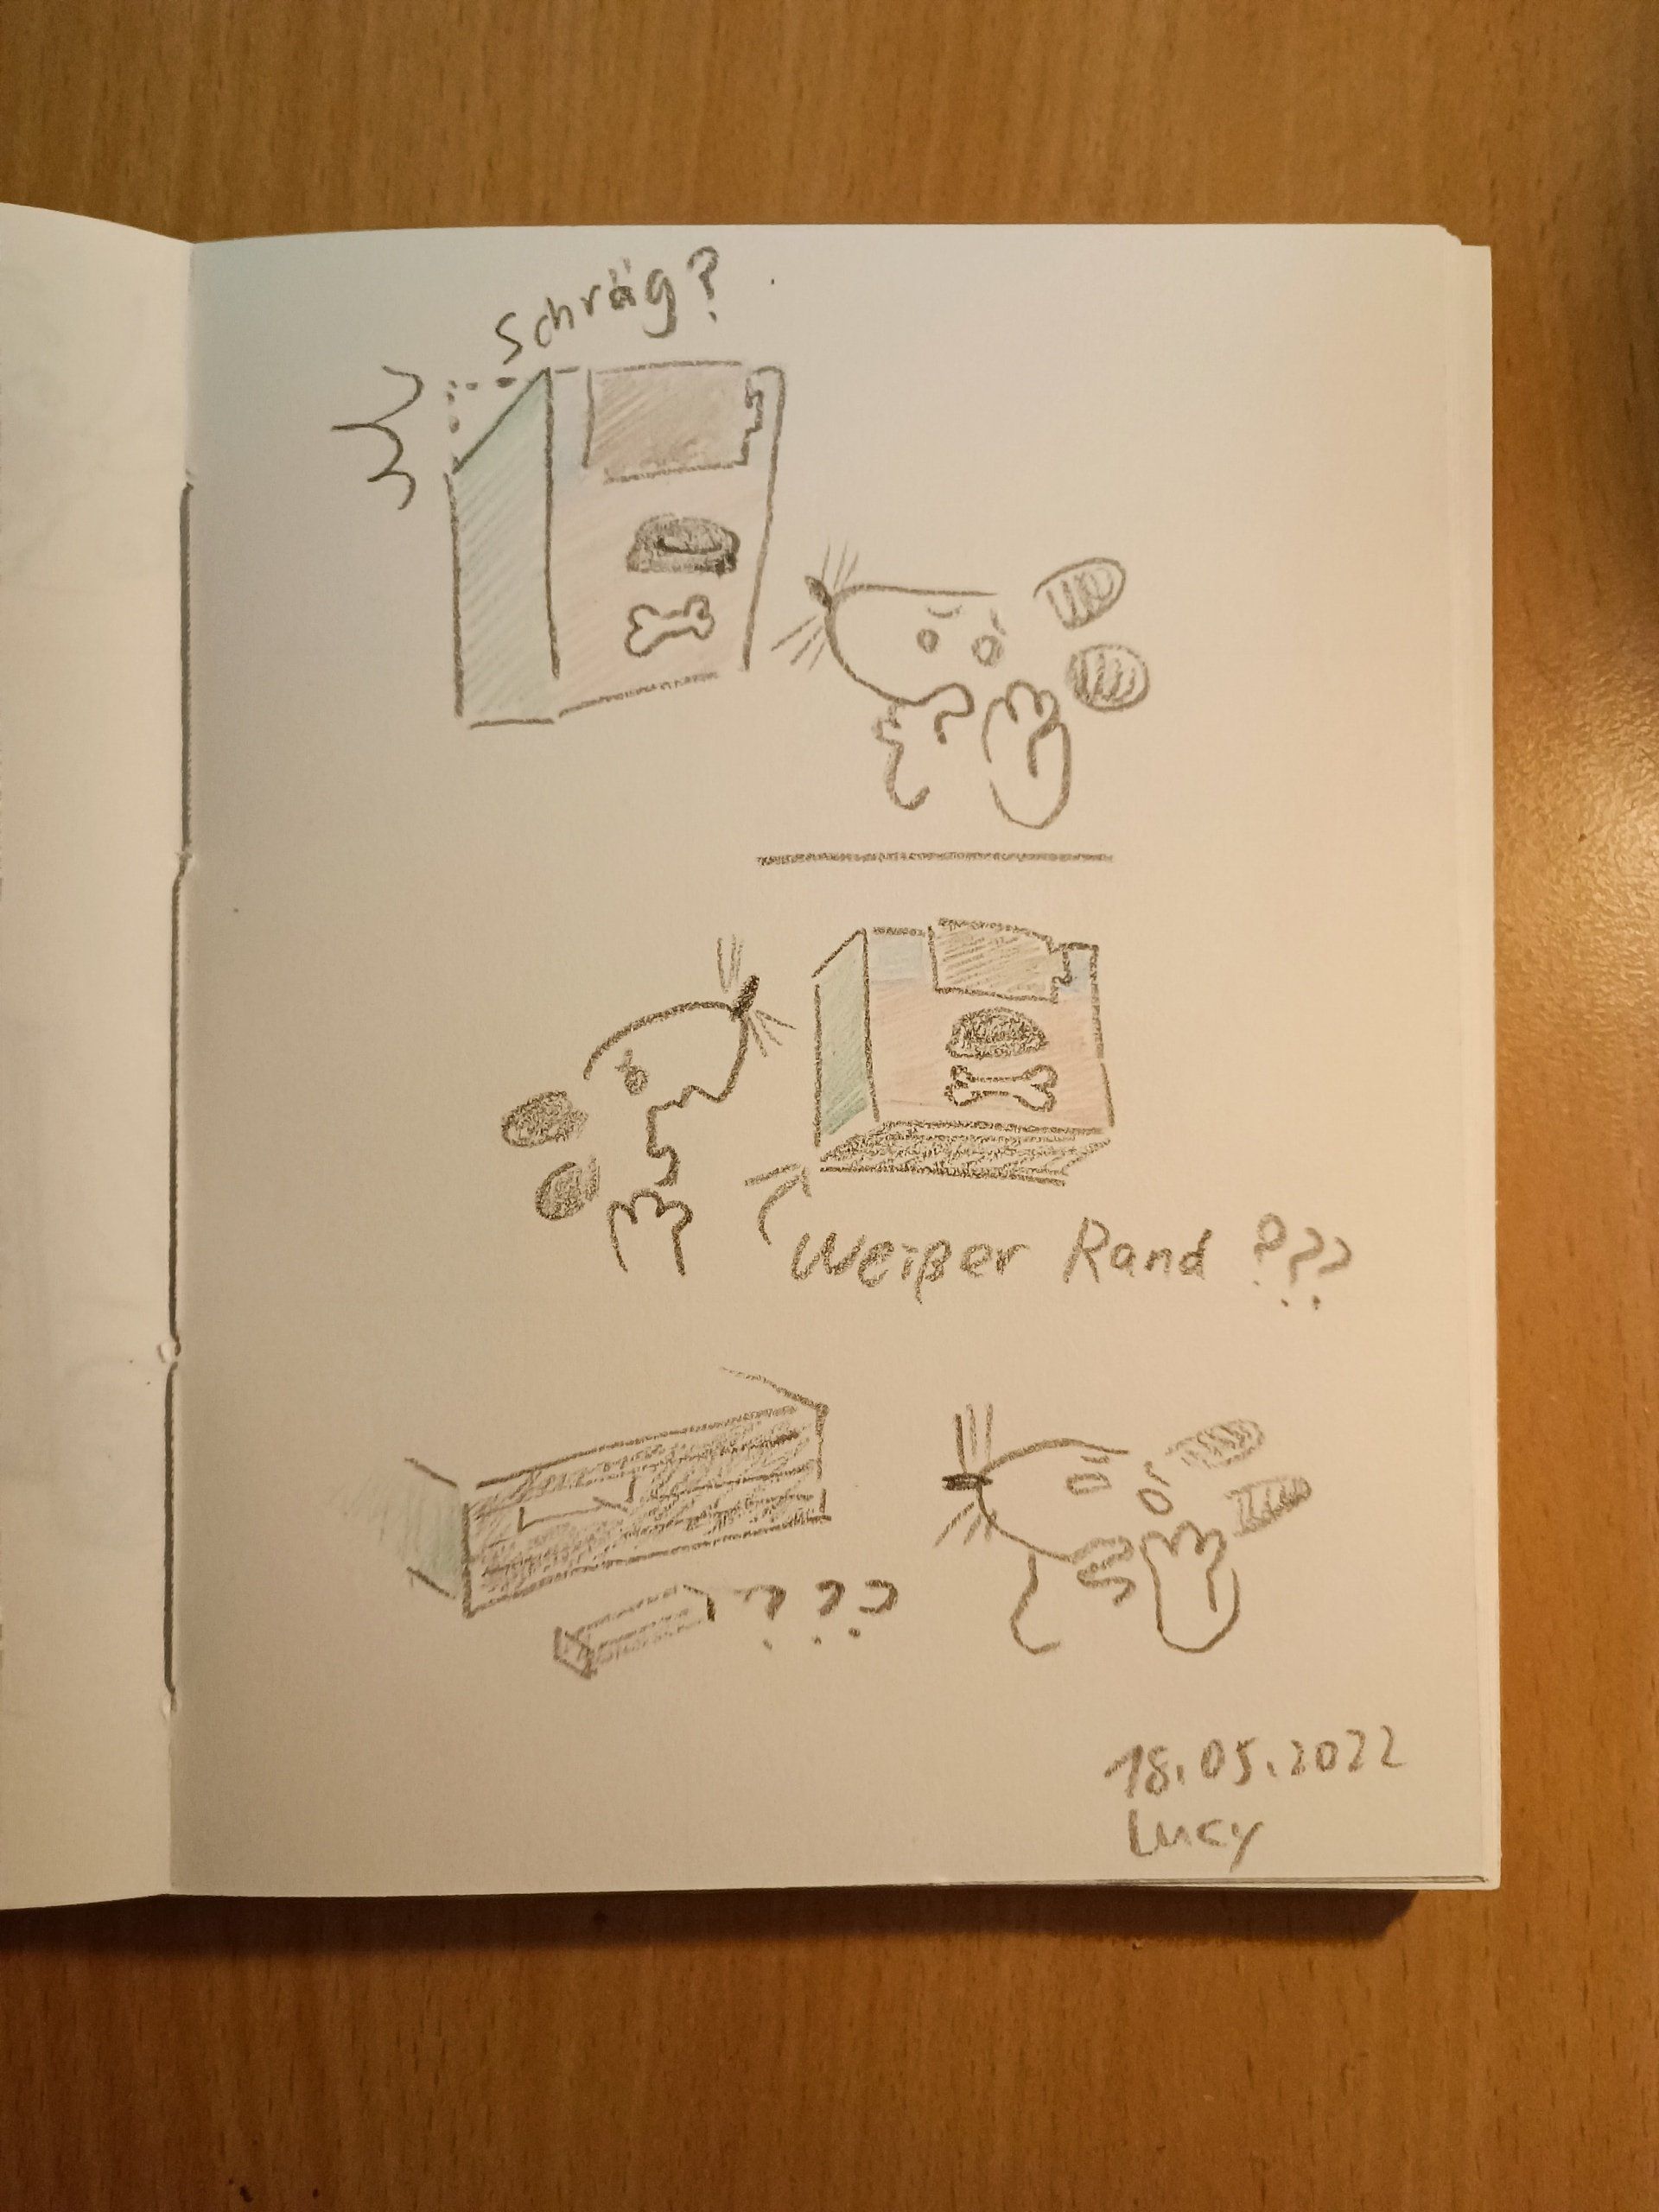 Schräg?
Weißer Rand ???
???
18.05.2022
Lucy